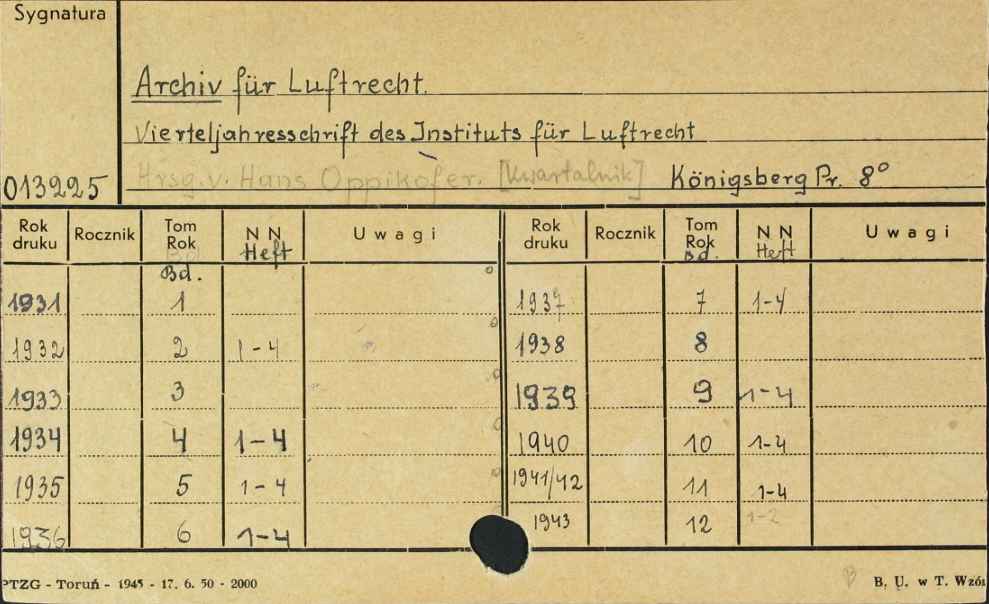 Sygnatura
Archiv für Luftrecht.
Vierteljahresschrift des Instituts für Luftrecht
Hrsg. v. Hans Oppikofer. [Kwartalnik] Königsberg Pr. 8°
013225
Rok druku Rocznik Tom Rok Bd. NN Heft Uwagi Rok druku Rocznik Tom Rok Bd. NN Heft Uwagi
Bd.
1931 1 1937 7 1-4
1932 2 1-4 1938 8
1933 3 1939 9 1-4
1934 4 1-4 1940 10 1-4
1935 5 1-4 1941/42 11 1-4
1936 6 1-4 1943 12 1-2
PTZG - Toruń - 1945 - 17. 6. 50 - 2000 B. U. w T. Wzó